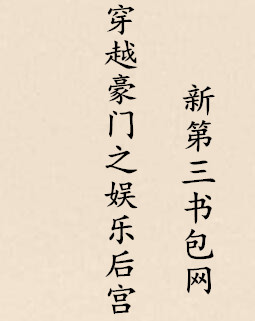 穿越豪门之娱乐后宫
新第三书包网